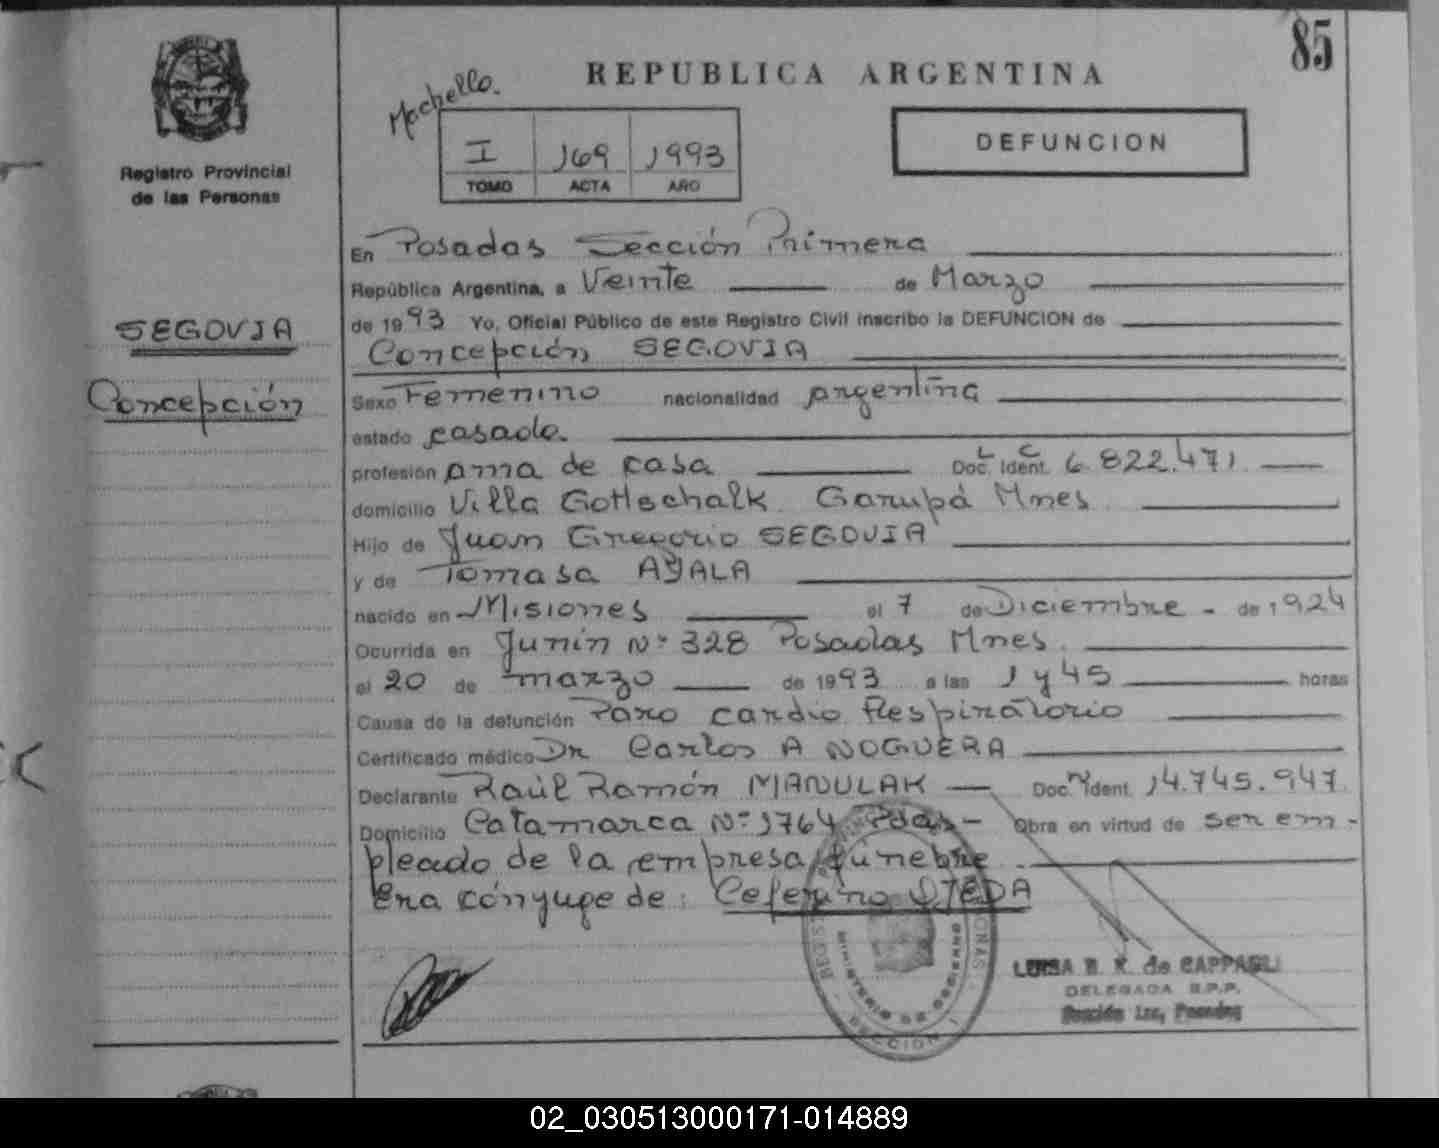 85
REPUBLICA ARGENTINA
Machello.
I 169 1993
TOMO ACTA AÑO
DEFUNCION
Registro Provincial
de las Personas
SEGOVIA
Concepción
En Posadas Sección Primera
República Argentina, a Veinte de Marzo
de 1993 Yo, Oficial Público de este Registro Civil inscribo la DEFUNCION de
Concepción SEGOVIA
Sexo Femenino nacionalidad argentina
estado casada.
profesión ama de casa Doc. Ident. L C 6.822.471
domicilio Villa Gottschalk Garupá Mnes.
Hijo de Juan Gregorio SEGOVIA
y de Tomasa AYALA
nacido en Misiones el 7 de Diciembre - de 1924
Ocurrida en Junín Nº 328 Posadas Mnes.
el 20 de marzo de 1993 a las 1 y 45 horas
Causa de la defunción Paro cardio Respiratorio
Certificado médico Dr Carlos A NOGUERA
Declarante Raúl Ramón MANULAK — Doc. Ident. 14.745.947
Domicilio Catamarca Nº 1764 Pdas - Obra en virtud de ser em-
pleado de la empresa fúnebre
Era cónyuge de: Ceferino OJEDA
MINISTERIO DE GOBIERNO
SECCION I
LUISA B. K. de CAPPAGLI
DELEGADA R.P.P.
Sección 1ra, Posadas
02_030513000171-014889